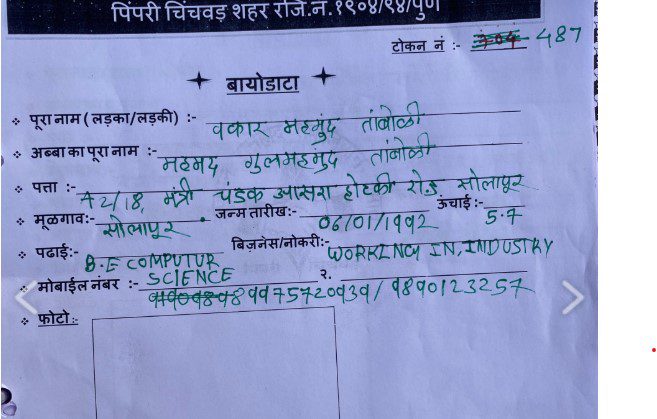 पिंपरी चिंचवड शहर रजि.नं.१९०४/९४/पुणे
टोकन नं :- 304 487
बायोडाटा
पूरा नाम (लड़का/लड़की) :- वकार महमुद तांबोळी
अब्बा का पूरा नाम :- महमद गुलमहमुद तांबोळी
पत्ता :- A2/18, मंत्री चंडक आसरा होटकी रोड सोलापूर
मूळगाव:- सोलापूर जन्म तारीख:- 06/01/1992 ऊंचाई :- 5.7
पढाई:- B.E COMPUTUR SCIENCE बिज़नेस/नोकरी:- WORKING IN, INDUSTRY
मोबाईल नंबर :- 9975720939/ २. 9890123257
फोटो:-